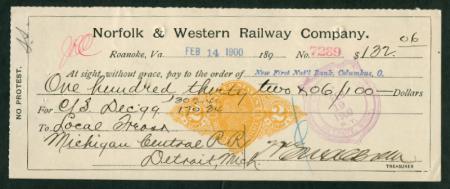 Norfolk & Western Railway Company.
Roanoke, Va. FEB 14 1900 189 No. 7289 $132.06
At sight, without grace, pay to the order of New First Nat'l Bank, Columbus, O.
One hundred thirty two & 06/100 Dollars
For C/S Dec 99
To Local Treas
Michigan Central R R
Detroit, Mich.
TREASURER
NO PROTEST.
2 2